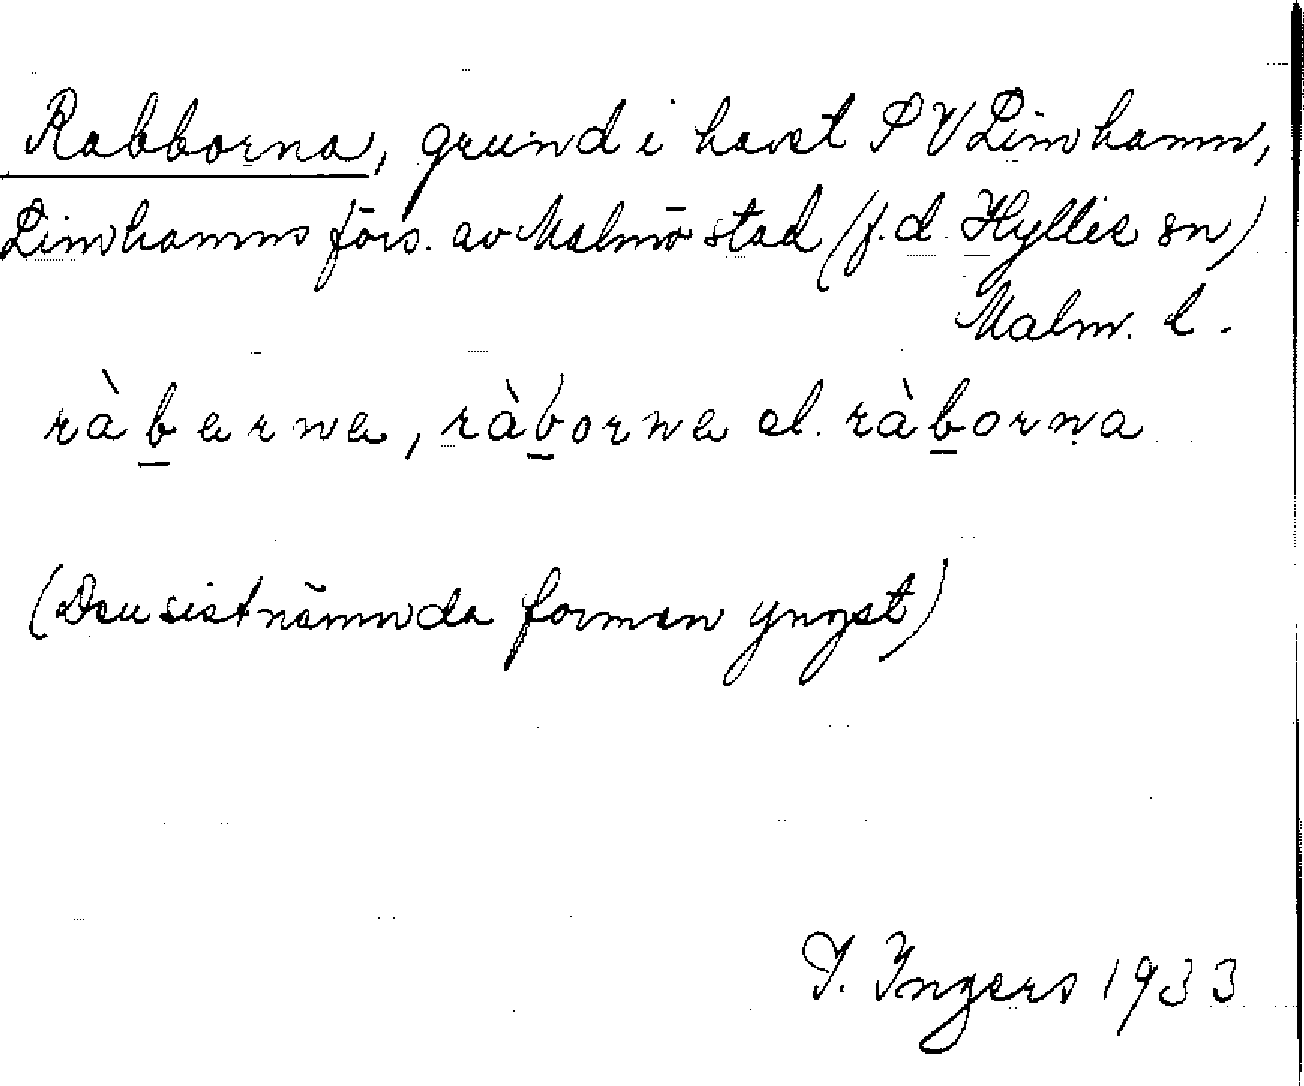 Rabborna, grund i havet SV Limhamn,
Limhamns förs. av Malmö stad (f.d. Hyllie sn)
Malm. l.
ràb̲ərnə, ràb̲ornə el. ràb̲orna
(Den sistnämnda formen yngst)
I. Ingers 1933